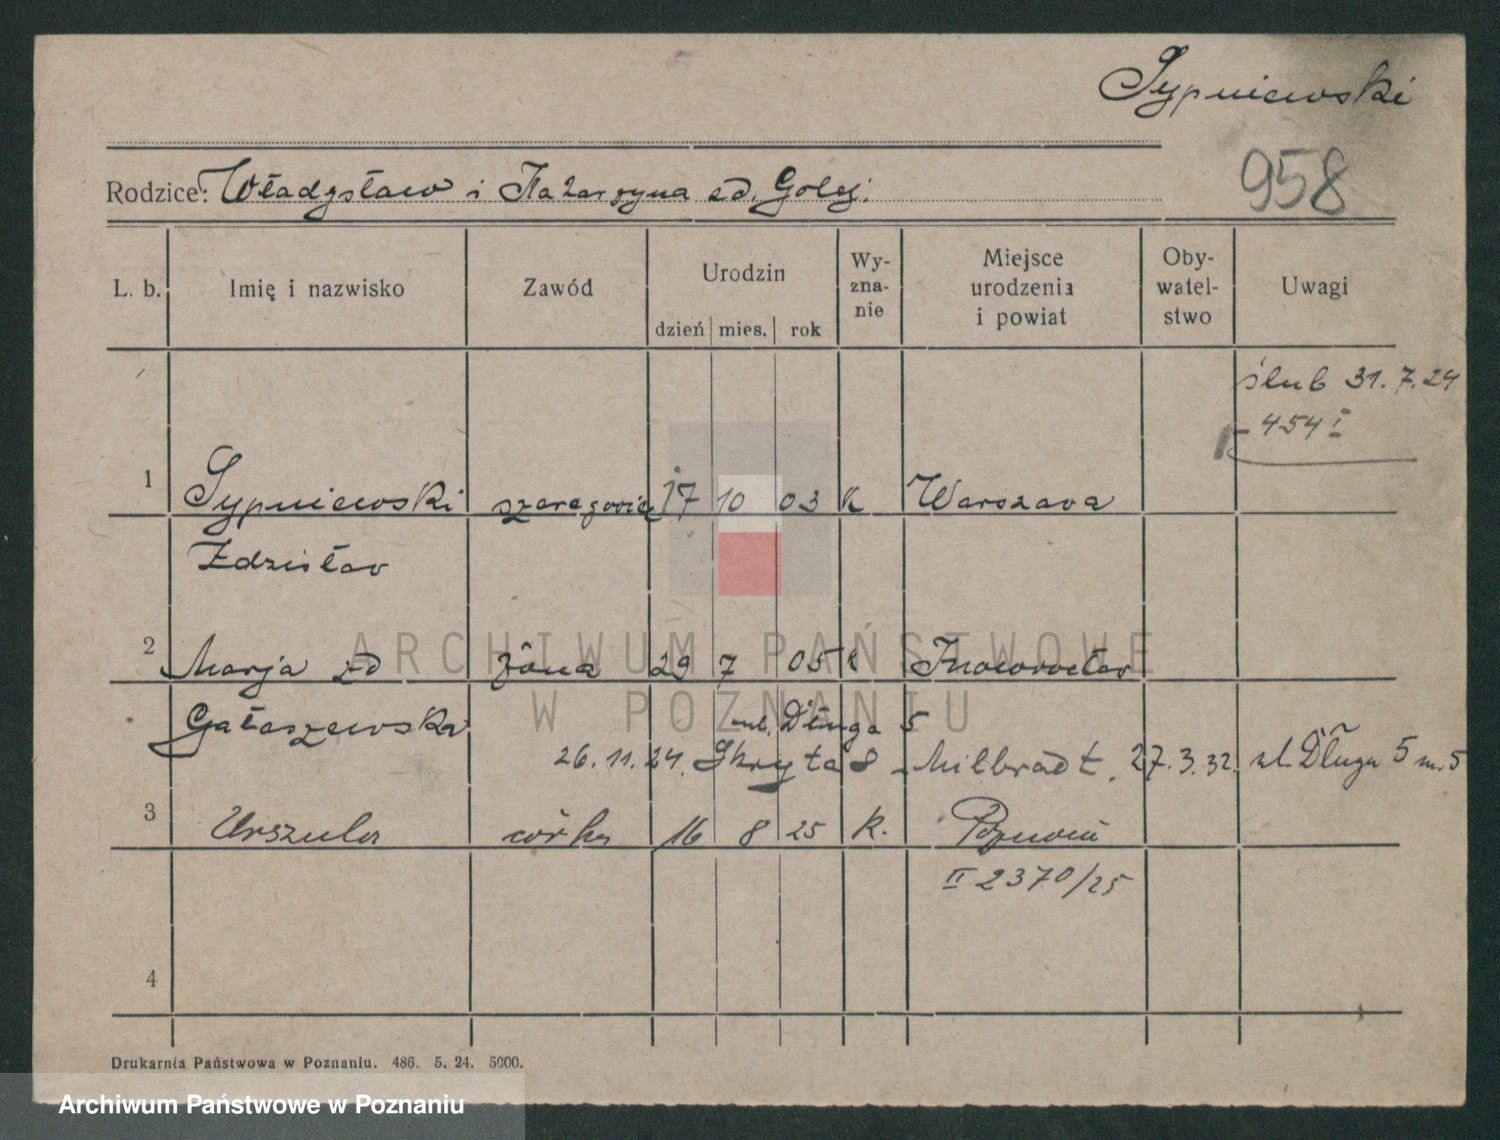 Sypniewski
958
Rodzice: Władysław i Katarzyna zd. Golej.
L. b. Imię i nazwisko Zawód Urodzin dzień mies. rok Wy-zna-nie Miejsce urodzenia i powiat Oby-watel-stwo Uwagi
ślub 31. 7. 24
454 I
1 Sypniewski szeregowiec 17 10 03 K Warszawa
Zdzisław
2 Marja zd żona 29 7 05 k Inowrocław
Gałaszewska ul. Długa 5
26. 11. 24. Skryta 8 - Milbradt. 27. 3. 32. ul. Długa 5 m. 5
3 Urszula córka 16 8 25 k. Poznań
II 2370/25
4
ARCHIWUM PAŃSTWOWE
W POZNANIU
Drukarnia Państwowa w Poznaniu. 486. 5. 24. 5000.
Archiwum Państwowe w Poznaniu